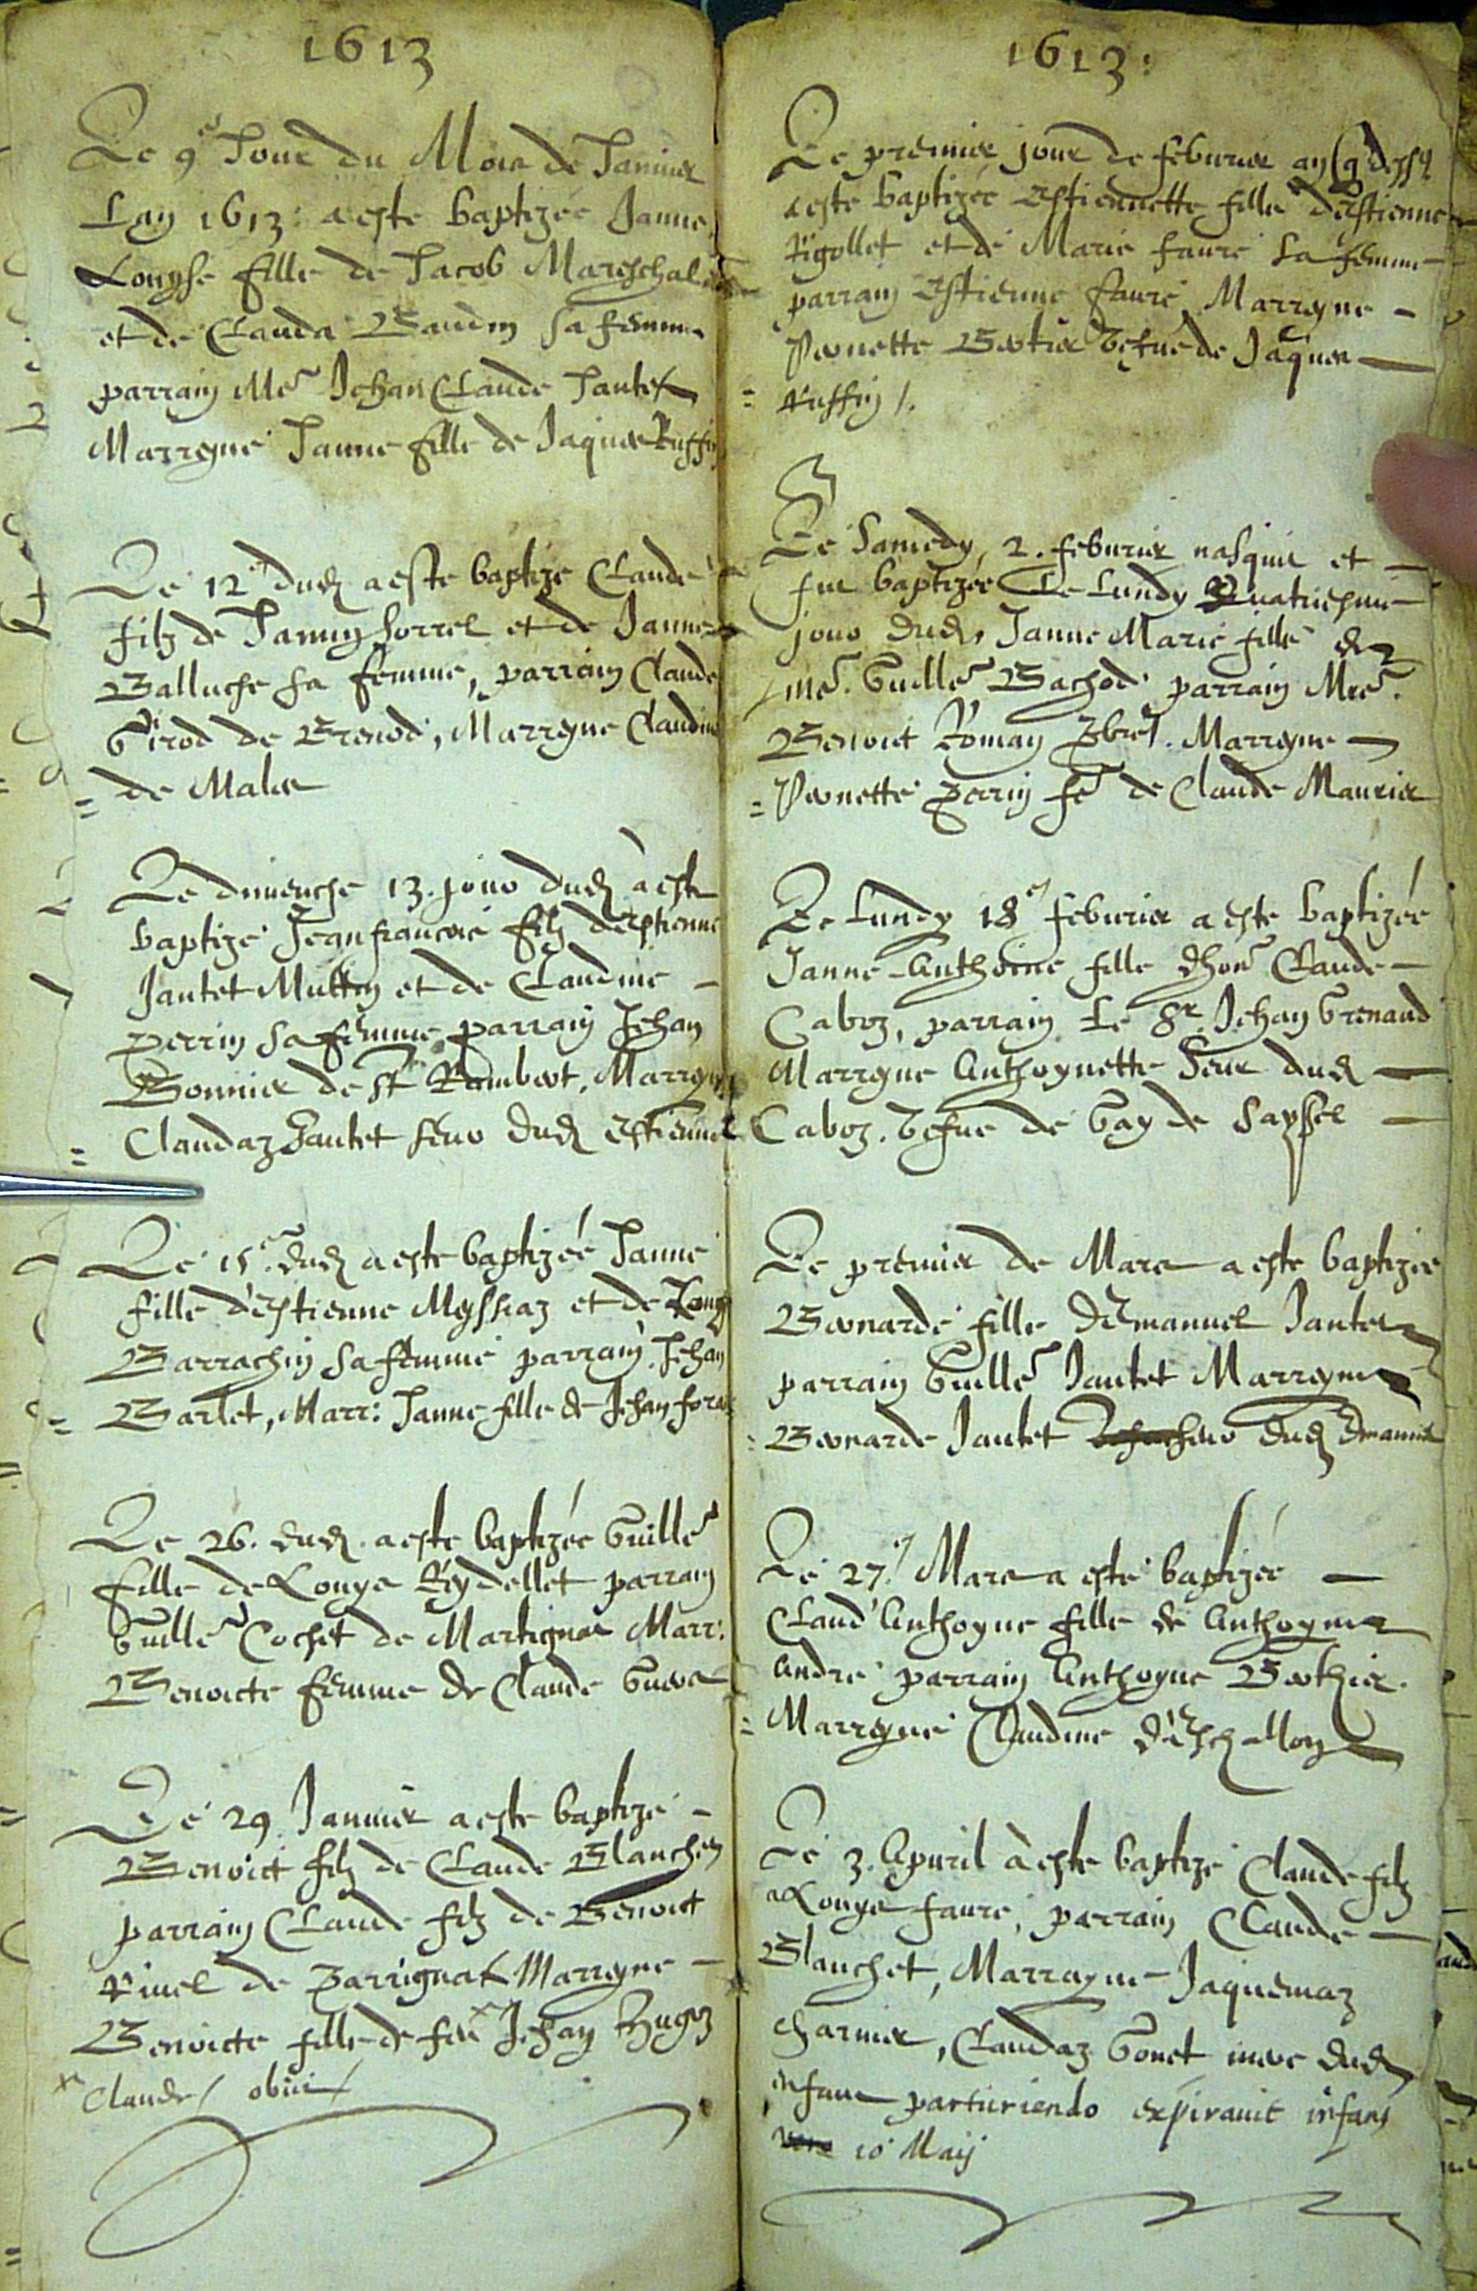 1613
Le 9e Jour du Mois de Janvier
Lan 1613: a este baptizée Janne
Louyse fille de Jacob Mareschal
et de Clauda Baudin sa femme
parrain Me Jehan Claude Jantet
Marreyne Janne fille de Jaques Ruffin
Le 12 dud. a este baptize Claude
filz de Jannin sorrel et de Janne
Balluche sa femme, parrain Claude
Girod de Brenod, Marreyne Claudine
de Males
Le dimenche 13. jour dud. a este
baptize Jean francois filz destienne
Jantet Muttin et de Claudine
perrin sa femme parrain Jehan
Bonnier de St Rambert, Marreyne
Claudaz Jantet seur dud. estienne
Le 15e dud. a este baptizée Janne
fille d'estienne Myssiaz et de
Barrachin sa femme parrain Jehan
Barlet, Marr: Janne fille de Jehan
Le 26. dud. a este baptizée Guille
fille de Louys Reydellet parrain
Guille Cochet de Martignat Marr:
Benoicte femme de Claude
Le 29 Janvier a este baptize
Benoict filz de Claude Blanchet
parrain Claude filz de Benoict
Rivel de parrignat Marreyne
Benoicte fille de feu x Jehan Hugoz
x Claude / obiit
1613:
Le premier jour de febvrier an
a este baptizée Estiennette fille d'Estienne
Rigollet et de Marie faure sa femme
parrain Estienne faure Marreyne
Pernette Bertier vefue de Jaques
Ruffin /.
Le Samedy, 2. febvrier nasquit et
fut baptizée Le Lundy Quatriesme
jour dud. Janne Marie fille de
me. Guille Bachod parrain Mre.
Benoict Roman pbre. Marreyne
Pernette perrin fe de Claude Maurier
Le Lundy 18e febvrier a este baptizée
Janne Anthoine fille d'hon Claude
Caboz, parrain Le Sr. Jehan Grenaud
Marreyne Anthoynette seur dud.
Caboz. vefue de Gay de Sayssel
Le premier de Mars a este baptizée
Bernarde fille d'Emanuel Jantet
parrain Guille Jantet Marreyne
Bernarde Jantet seur dud. Emanuel
Le 27e. Mars a este baptizée
Claud'Anthoyne fille de Anthoyne
Andre parrain Anthoyne Berthier.
Marreyne Claudine d'Eschallon
Le 3. Apuril a este baptize Claude filz
a Louys faure, parrain Claude
Blanchet, Marrayne Jaquemaz
charvier, Claudaz Gonet mere dud.
enfant parturiendo expirauit infans
10 Maij